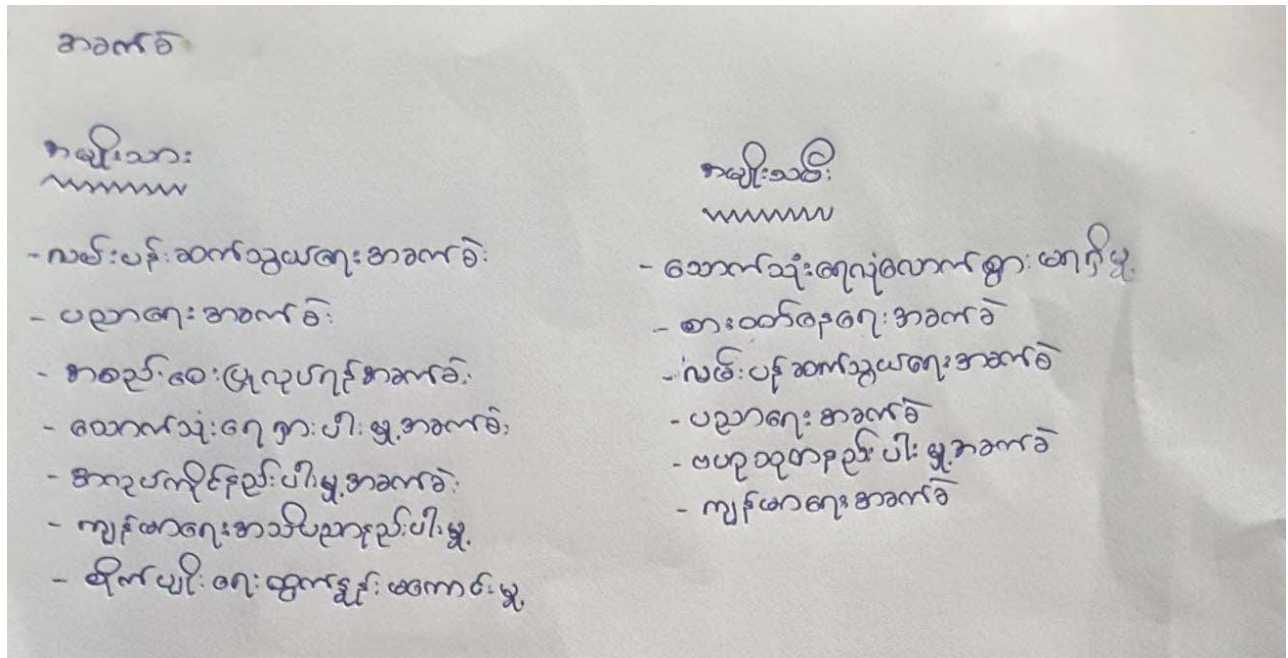 အခက်ခဲ
အမျိုးသား
- လမ်းပန်းဆက်သွယ်ရေးအခက်ခဲ
- ပညာရေးအခက်ခဲ
- အစည်းဝေးပြုလုပ်ရန်အခက်ခဲ
- သောက်သုံးရေရှားပါးမှု့အခက်ခဲ
- အလုပ်ကိုင်နည်းပါးမှု့အခက်ခဲ
- ကျန်မာရေးအသိပညာနည်းပါးမှု့
- စိုက်ပျိုးရေးထွက်နှုန်းမကောင်းမှု့
အမျိုးသမီး
- သောက်သုံးရေလုံလောက်စွာမရှိမှု့
- စားဝတ်နေရေးအခက်ခဲ
- လမ်းပန်ဆက်သွယ်ရေးအခက်ခဲ
- ပညာရေးအခက်ခဲ
- ဗဟုသုတနည်းပါးမှု့အခက်ခဲ
- ကျန်မာရေးအခက်ခဲ